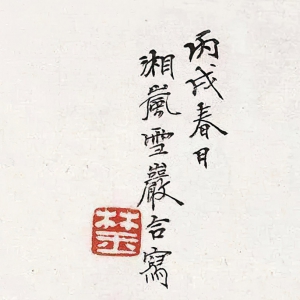 丙戌春月
湘嵐雪巖合寫